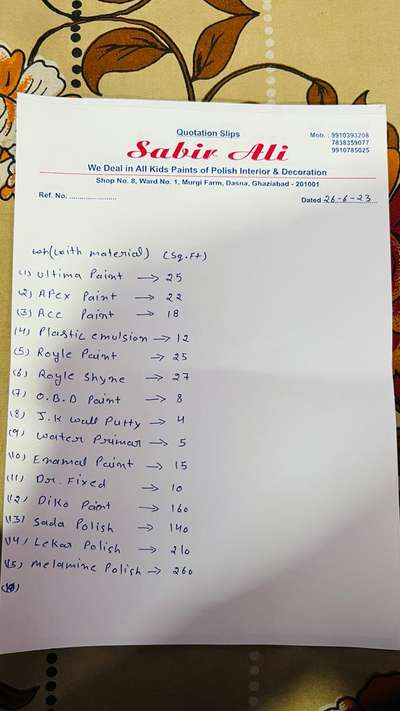 Quotation Slips
Mob. : 9910393208
7838359077
9910785025
Sabir Ali
We Deal in All Kids Paints of Polish Interior & Decoration
Shop No. 8, Ward No. 1, Murgi Farm, Dasna, Ghaziabad - 201001
Ref. No. ...................... Dated 26-6-23
(with material) (Sq.Ft)
(1) Ultima Paint → 25
(2) APex Paint → 22
(3) Ace Paint → 18
(4) Plastic emulsion → 12
(5) Royle Paint → 25
(6) Royle Shyne → 27
(7) O.B.D Paint → 8
(8) J.K Wall Putty → 4
(9) Water Primar → 5
(10) Enamal Paint → 15
(11) Dr. Fixed → 10
(12) Diko Paint → 160
(13) Sada Polish → 140
(14) Lekar Polish → 210
(15) Melamine Polish → 260